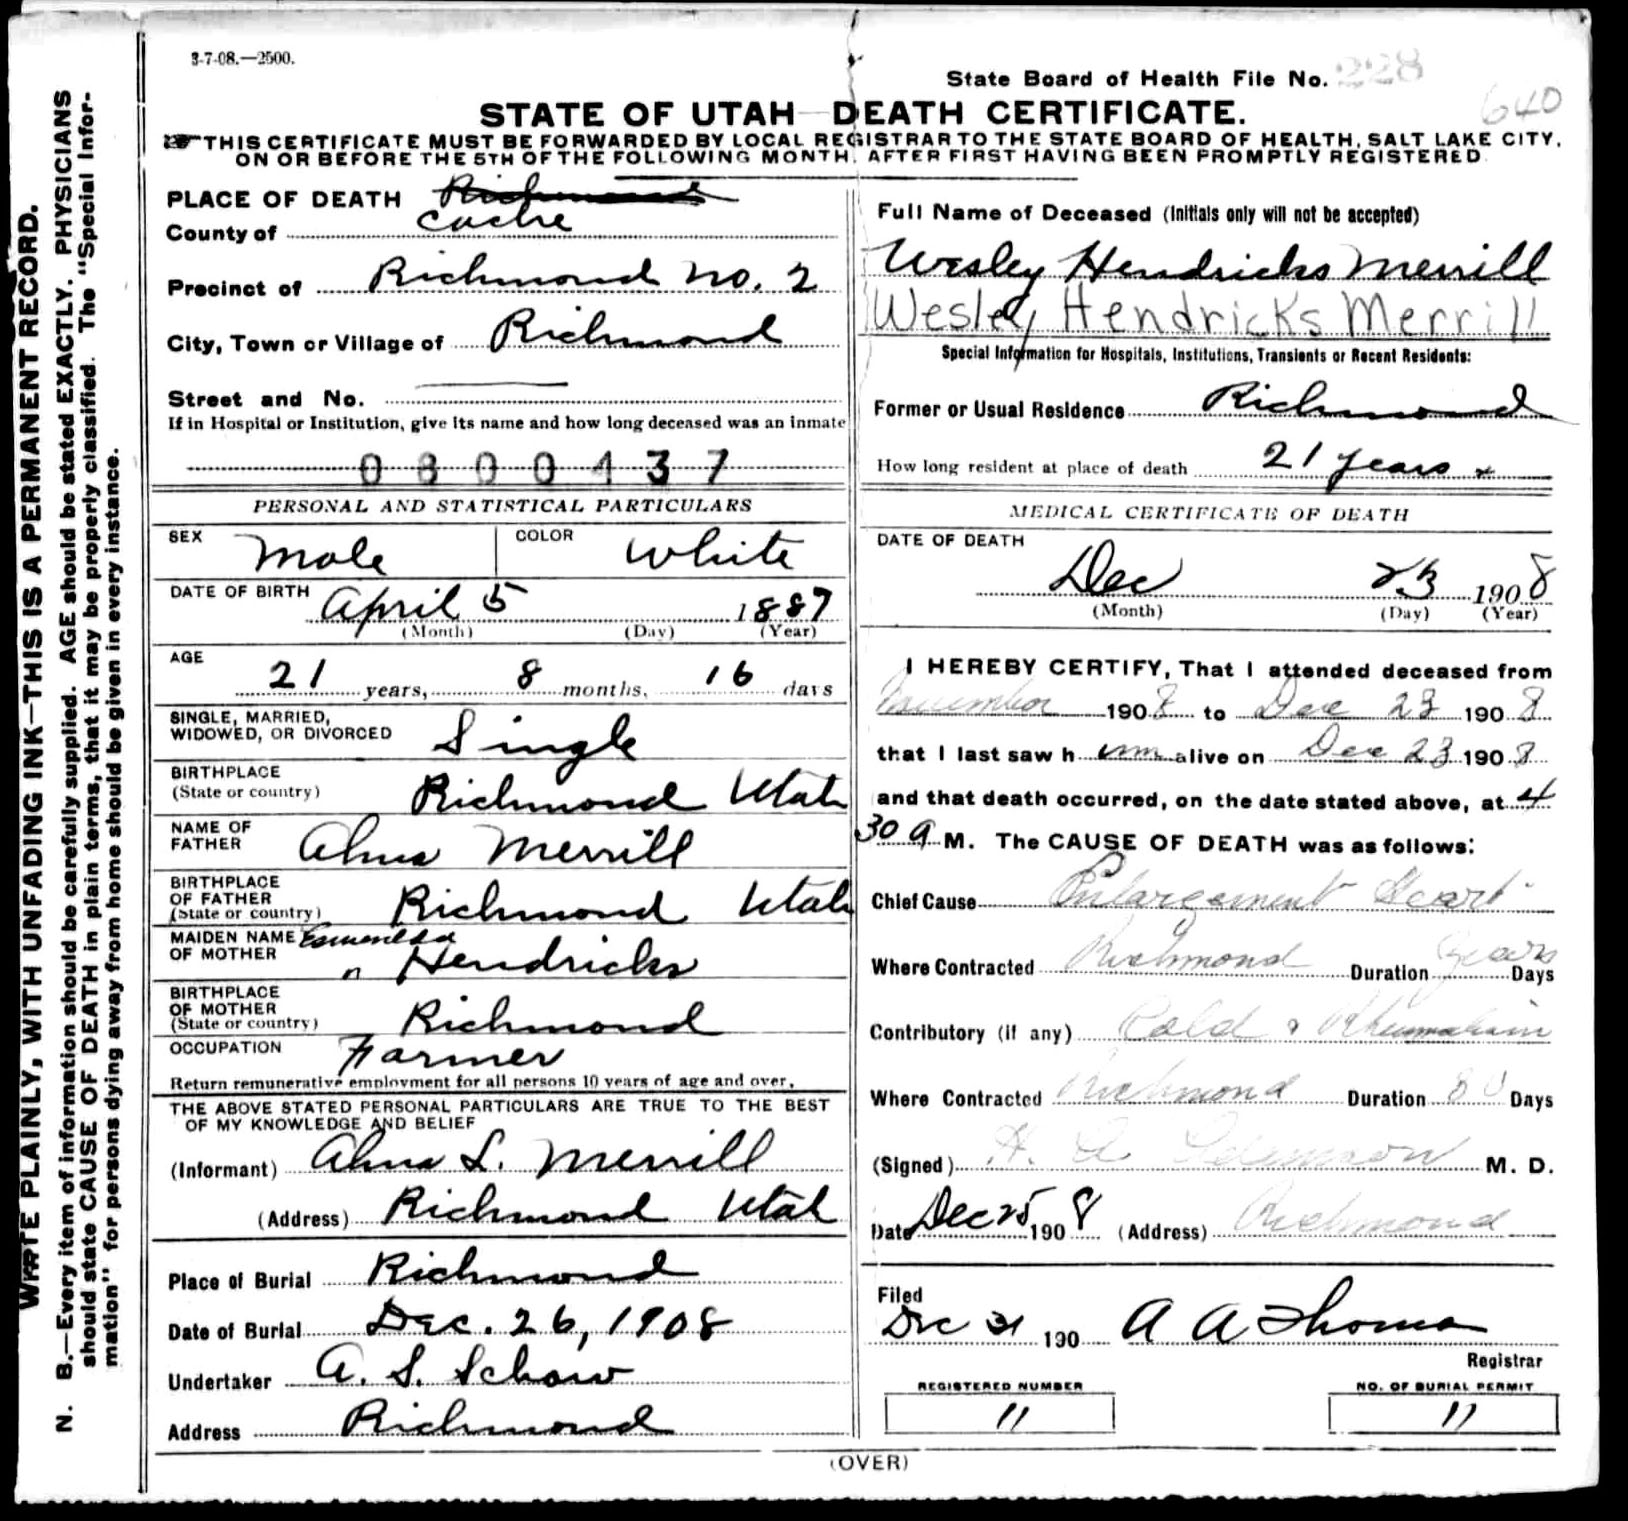 3-7-08.—2500.
State Board of Health File No. 228
640
STATE OF UTAH DEATH CERTIFICATE.
THIS CERTIFICATE MUST BE FORWARDED BY LOCAL REGISTRAR TO THE STATE BOARD OF HEALTH, SALT LAKE CITY,
ON OR BEFORE THE 5TH OF THE FOLLOWING MONTH, AFTER FIRST HAVING BEEN PROMPTLY REGISTERED.
WRITE PLAINLY, WITH UNFADING INK—THIS IS A PERMANENT RECORD.
N. B.—Every item of information should be carefully supplied. AGE should be stated EXACTLY. PHYSICIANS
should state CAUSE OF DEATH in plain terms, that it may be properly classified. The "Special Infor-
mation" for persons dying away from home should be given in every instance.
PLACE OF DEATH Richmond
County of Cache
Precinct of Richmond No. 2
City, Town or Village of Richmond
Street and No.
If in Hospital or Institution, give its name and how long deceased was an inmate
0800437
PERSONAL AND STATISTICAL PARTICULARS
SEX Male COLOR White
DATE OF BIRTH April 5 1887
(Month) (Day) (Year)
AGE 21 years, 8 months, 16 days
SINGLE, MARRIED,
WIDOWED, OR DIVORCED Single
BIRTHPLACE
(State or country) Richmond Utah
NAME OF
FATHER Alma Merrill
BIRTHPLACE
OF FATHER
(State or country) Richmond Utah
MAIDEN NAME Esmerelda
OF MOTHER Hendricks
BIRTHPLACE
OF MOTHER
(State or country) Richmond
OCCUPATION Farmer
Return remunerative employment for all persons 10 years of age and over.
THE ABOVE STATED PERSONAL PARTICULARS ARE TRUE TO THE BEST
OF MY KNOWLEDGE AND BELIEF
(Informant) Alma L. Merrill
(Address) Richmond Utah
Place of Burial Richmond
Date of Burial Dec. 26, 1908
Undertaker A. S. Schow
Address Richmond
Full Name of Deceased (Initials only will not be accepted)
Wesley Hendricks Merrill
Wesley Hendricks Merrill
Special Information for Hospitals, Institutions, Transients or Recent Residents:
Former or Usual Residence Richmond
How long resident at place of death 21 years
MEDICAL CERTIFICATE OF DEATH
DATE OF DEATH
Dec 23 1908
(Month) (Day) (Year)
I HEREBY CERTIFY, That I attended deceased from
November 1908 to Dec 23 1908
that I last saw him alive on Dec 23 1908
and that death occurred, on the date stated above, at 4
30 a M. The CAUSE OF DEATH was as follows:
Chief Cause Enlargement Heart
Where Contracted Richmond Duration Years Days
Contributory (if any) Cold & Rheumatism
Where Contracted Richmond Duration 80 Days
(Signed) H. A. M. D.
Date Dec 25 1908 (Address) Richmond
Filed
Dec 31 190 A A Thomas
Registrar
REGISTERED NUMBER
11
NO. OF BURIAL PERMIT
11
(OVER)